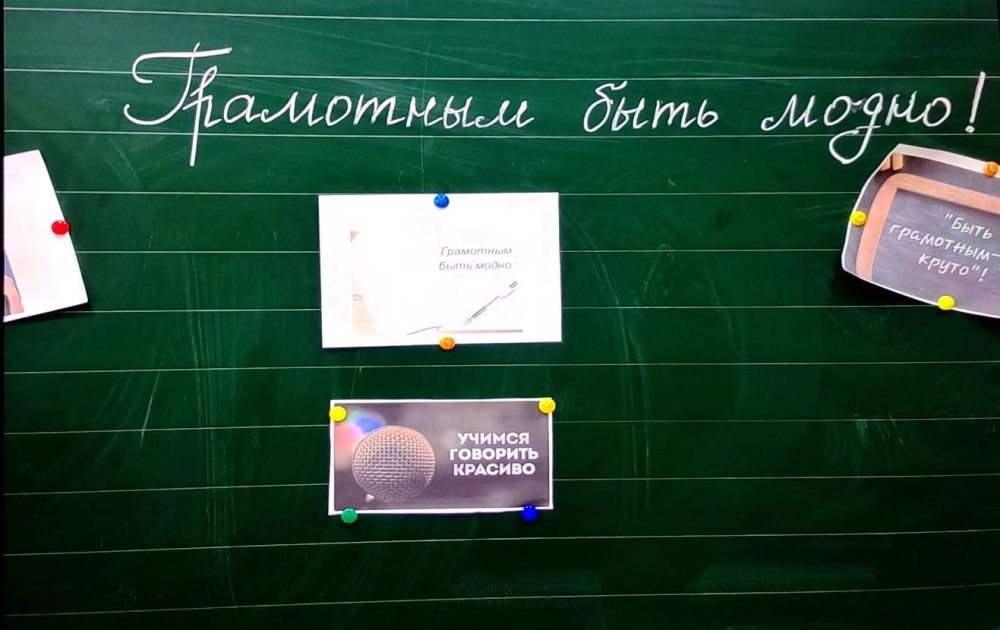 Грамотным быть модно!
Грамотным
быть модно
"Быть
грамотным-
круто"!
УЧИМСЯ
ГОВОРИТЬ
КРАСИВО